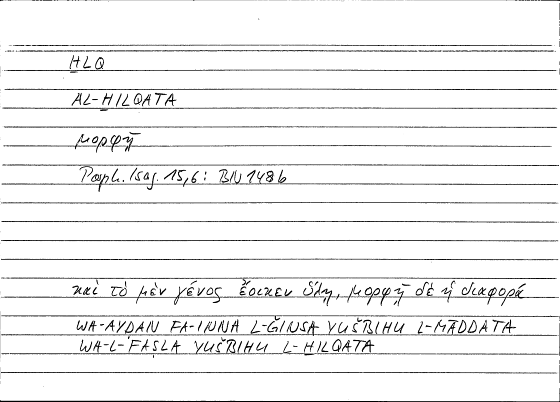 ḪLQ
AL-ḪILQATA
μορφῇ
Porph. Isag. 15,6: BN 148b
καὶ τὸ μὲν γένος ἔοικεν ὕλῃ, μορφῇ δὲ ἡ διαφορά
WA-AYḌAN FA-INNA L-ǦINSA YUŠBIHU L-MĀDDATA
WA-L-FAṢLA YUŠBIHU L-ḪILQATA